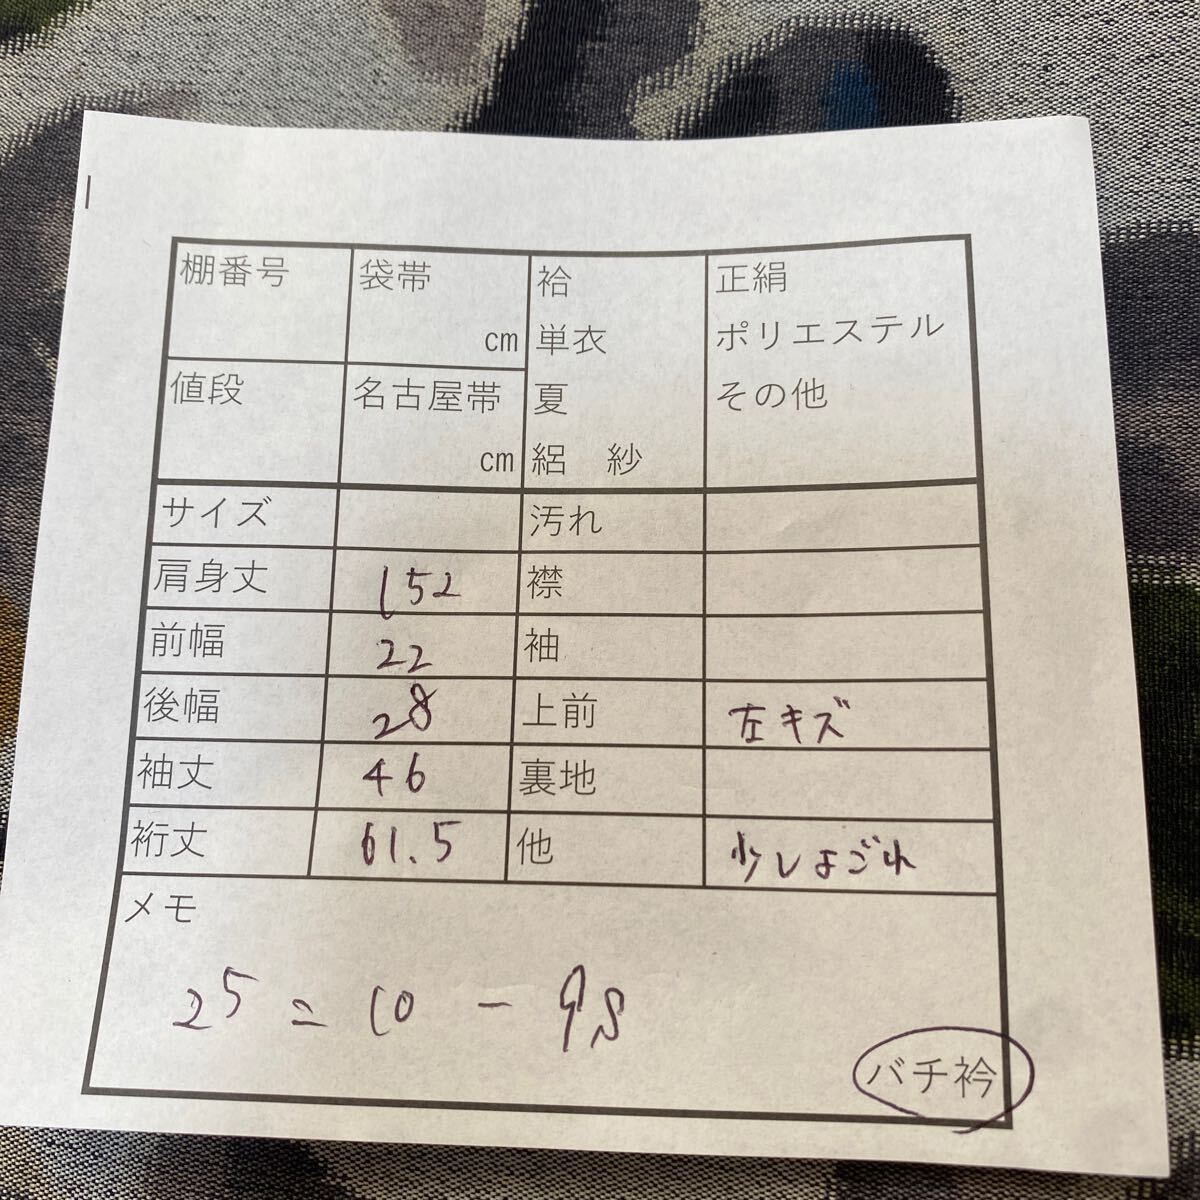 棚番号 袋帯 袷 正絹
cm 単衣 ポリエステル
値段 名古屋帯 夏 その他
cm 絽 紗
サイズ 汚れ
肩身丈 152 襟
前幅 22 袖
後幅 28 上前 左キズ
袖丈 46 裏地
裄丈 61.5 他 少しよごれ
メモ
25=10-98
バチ衿